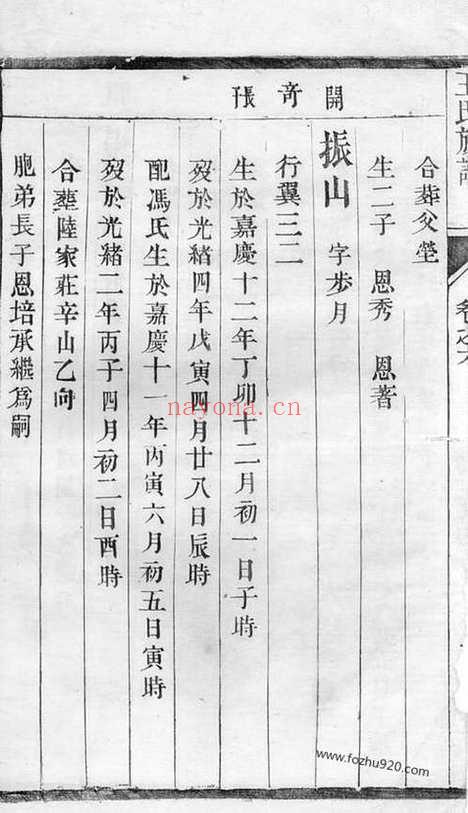 王氏族譜
卷之六
開奇張
合葬父塋
生二子 恩秀 恩著
振山 字步月
行翼三二
生於嘉慶十二年丁卯十二月初一日子時
歿於光緒四年戊寅四月廿八日辰時
配馮氏生於嘉慶十一年丙寅六月初五日寅時
歿於光緒二年丙子四月初二日酉時
合葬陸家莊辛山乙向
胞弟長子恩培承繼爲嗣
nayona.cn
www.fozhu920.com